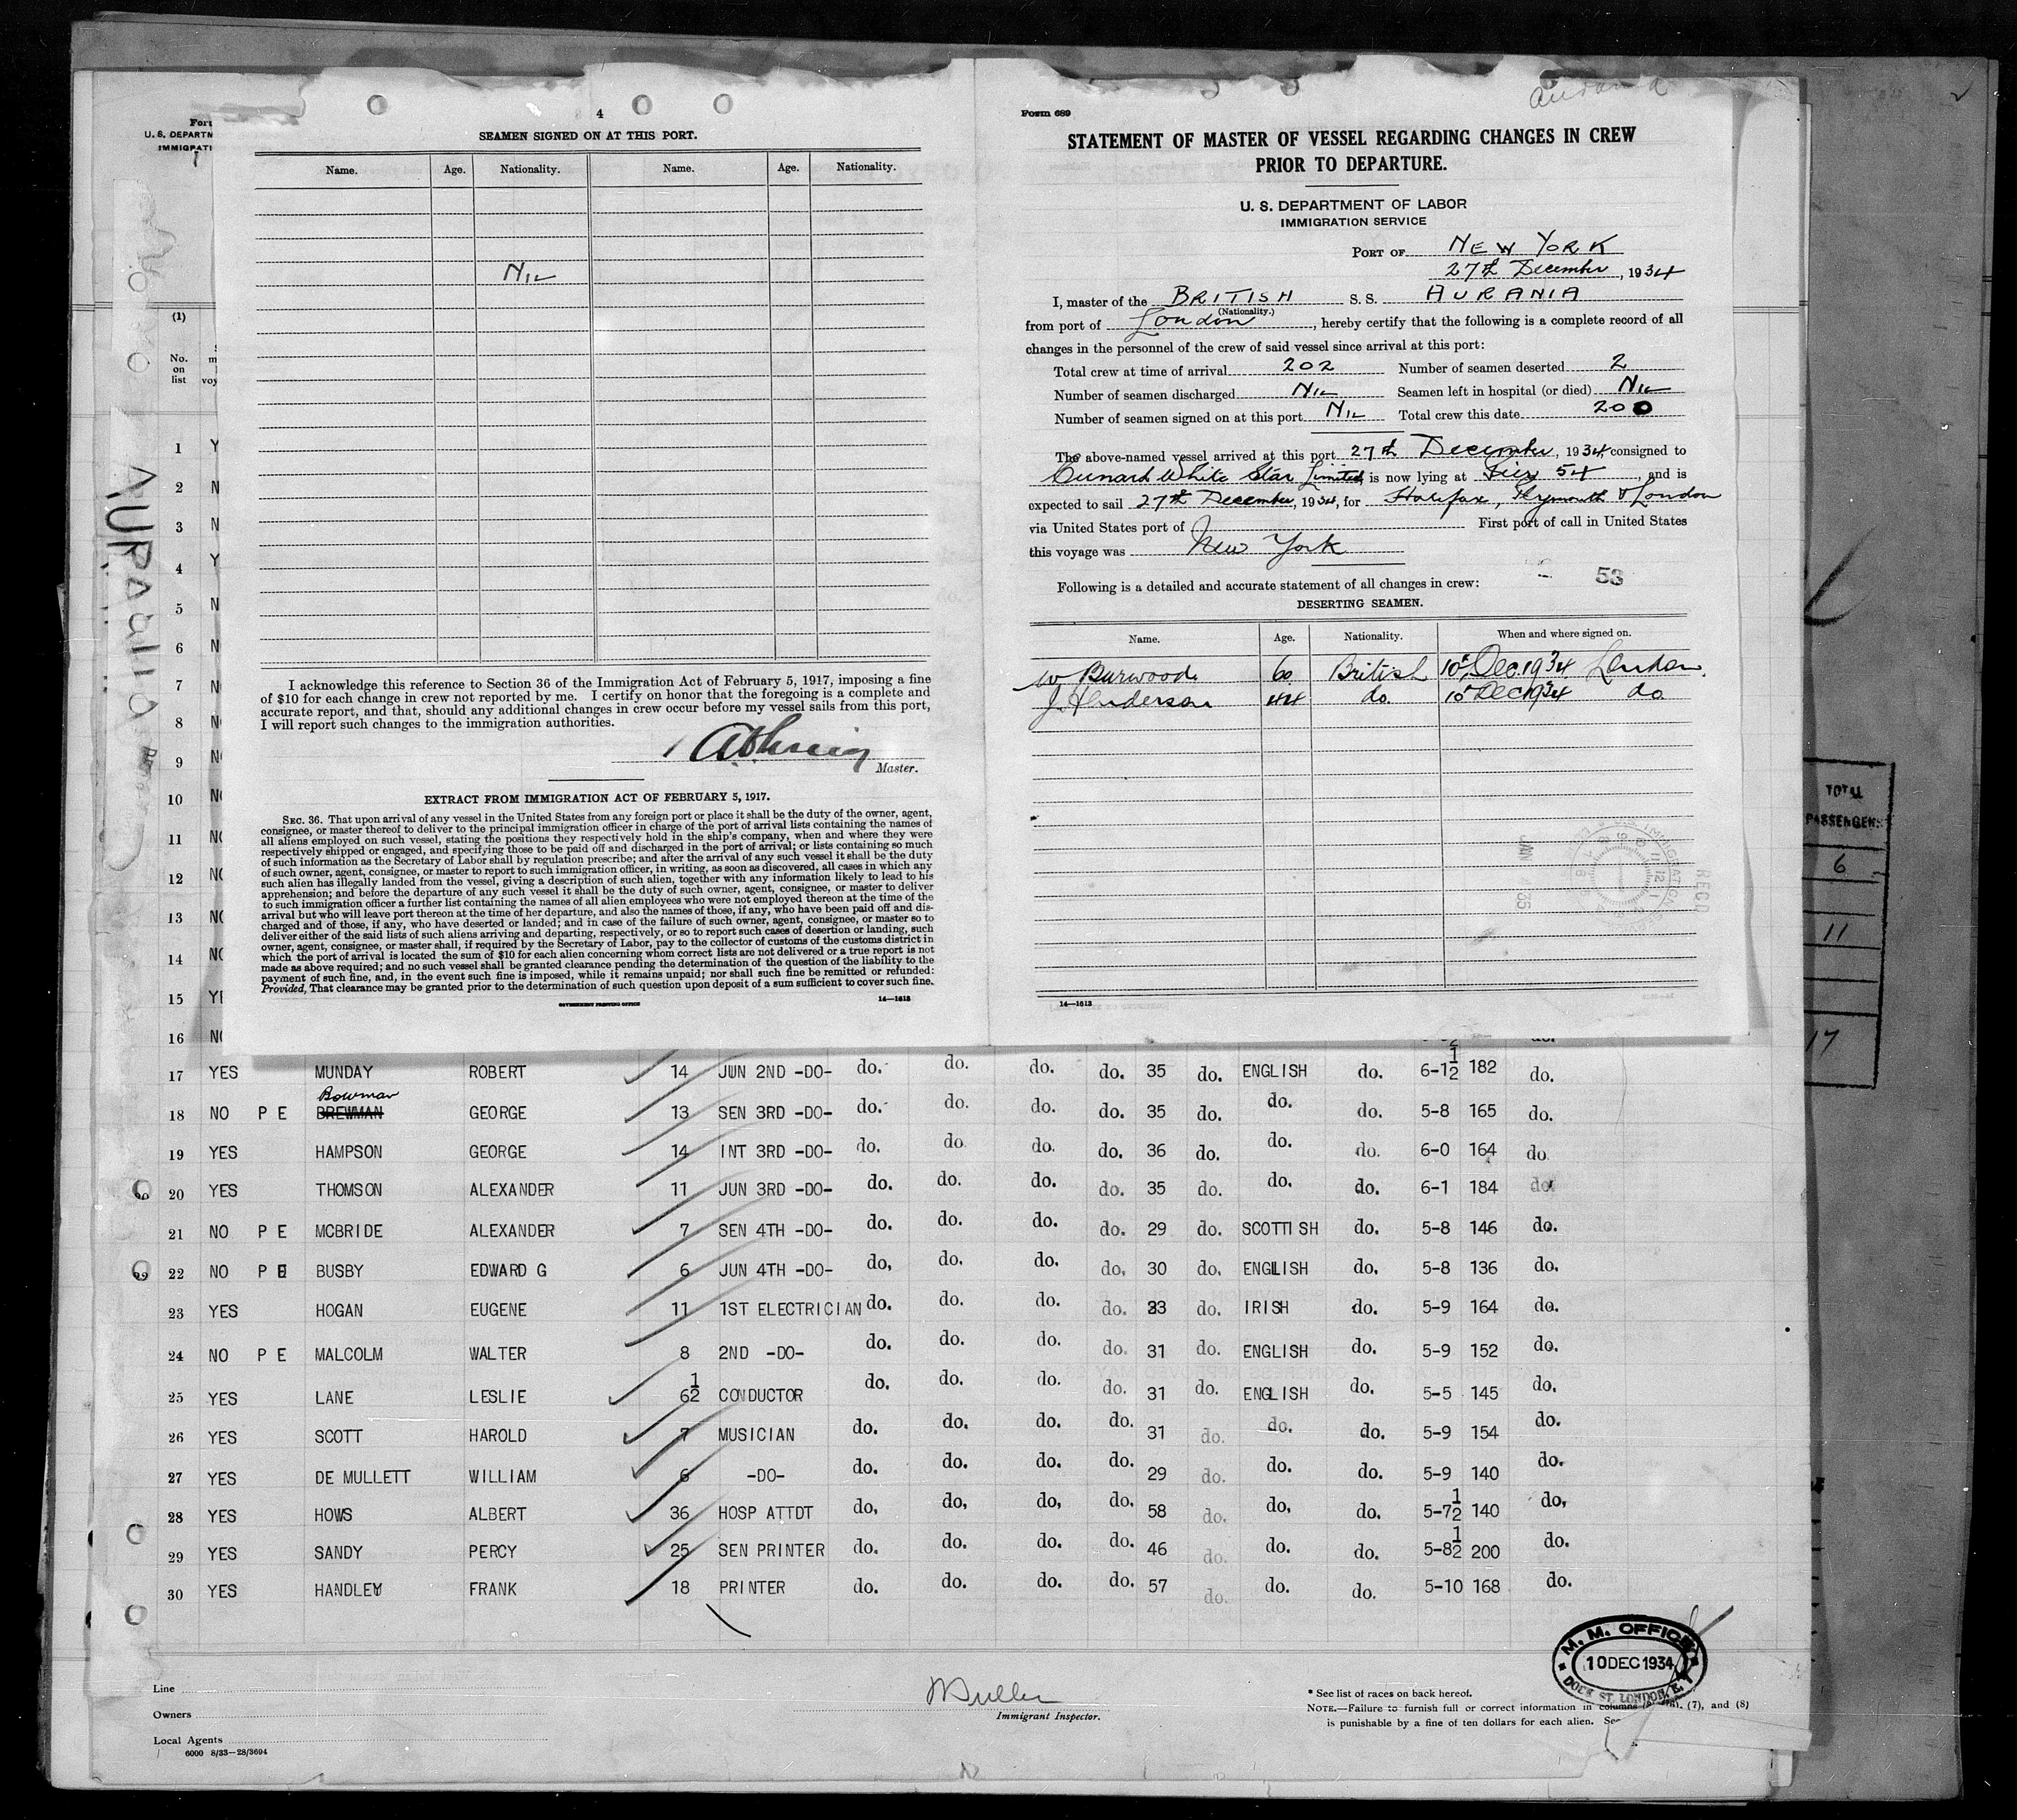 Form 689
4
SEAMEN SIGNED ON AT THIS PORT.
Name. Age. Nationality. Name. Age. Nationality.
NIL
I acknowledge this reference to Section 36 of the Immigration Act of February 5, 1917, imposing a fine
of $10 for each change in crew not reported by me. I certify on honor that the foregoing is a complete and
accurate report, and that, should any additional changes in crew occur before my vessel sails from this port,
I will report such changes to the immigration authorities.
Master.
EXTRACT FROM IMMIGRATION ACT OF FEBRUARY 5, 1917.
SEC. 36. That upon arrival of any vessel in the United States from any foreign port or place it shall be the duty of the owner, agent,
consignee, or master thereof to deliver to the principal immigration officer in charge of the port of arrival lists containing the names of
all aliens employed on such vessel, stating the positions they respectively hold in the ship's company, when and where they were
respectively shipped or engaged, and specifying those to be paid off and discharged in the port of arrival; or lists containing so much
of such information as the Secretary of Labor shall by regulation prescribe; and after the arrival of any such vessel it shall be the duty
of such owner, agent, consignee, or master to report to such immigration officer, in writing, as soon as discovered, all cases in which any
such alien has illegally landed from the vessel, giving a description of such alien, together with any information likely to lead to his
apprehension; and before the departure of any such vessel it shall be the duty of such owner, agent, consignee, or master to deliver
to such immigration officer a further list containing the names of all alien employees who were not employed thereon at the time of the
arrival but who will leave port thereon at the time of her departure, and also the names of those, if any, who have been paid off and dis-
charged and of those, if any, who have deserted or landed; and in case of the failure of such owner, agent, consignee, or master so to
deliver either of the said lists of such aliens arriving and departing, respectively, or so to report such cases of desertion or landing, such
owner, agent, consignee, or master shall, if required by the Secretary of Labor, pay to the collector of customs of the customs district in
which the port of arrival is located the sum of $10 for each alien concerning whom correct lists are not delivered or a true report is not
made as above required; and no such vessel shall be granted clearance pending the determination of the question of the liability to the
payment of such fine, and, in the event such fine is imposed, while it remains unpaid; nor shall such fine be remitted or refunded:
Provided, That clearance may be granted prior to the determination of such question upon deposit of a sum sufficient to cover such fine.
GOVERNMENT PRINTING OFFICE 14—1613
STATEMENT OF MASTER OF VESSEL REGARDING CHANGES IN CREW
PRIOR TO DEPARTURE.
U. S. DEPARTMENT OF LABOR
IMMIGRATION SERVICE
PORT OF NEW YORK
27th December, 1934
I, master of the BRITISH S. S. AURANIA
(Nationality.)
from port of London, hereby certify that the following is a complete record of all
changes in the personnel of the crew of said vessel since arrival at this port:
Total crew at time of arrival 202 Number of seamen deserted 2
Number of seamen discharged NIL Seamen left in hospital (or died) NIL
Number of seamen signed on at this port NIL Total crew this date 200
The above-named vessel arrived at this port 27th December, 1934 consigned to
Cunard White Star Limited, is now lying at Pier 54, and is
expected to sail 27th December, 1934, for Halifax, Plymouth & London
via United States port of First port of call in United States
this voyage was New York
Following is a detailed and accurate statement of all changes in crew:
53
DESERTING SEAMEN.
Name. Age. Nationality. When and where signed on.
W Burwood 60 British 10th Dec. 1934 London.
J. Henderson 44 do. 10th Dec 1934 do
RECD
JAN 35
14—1613
TOTAL
PASSENGERS
6
11
17
U. S. DEPARTM
IMMIGRATI
(1)
No.
on
list
1 Y
2 N
3 N
4 Y
5 N
6 N
7 N
8 N
9 N
10 N
11 NO
12 NO
13 NO
14 NO
15 YE
16 NO
17 YES MUNDAY ROBERT 14 JUN 2ND -DO- do. do. do. do. 35 do. ENGLISH do. 6-1½ 182 do.
Bowman
18 NO P E BREWMAN GEORGE 13 SEN 3RD -DO- do. do. do. do. 35 do. do. do. 5-8 165 do.
19 YES HAMPSON GEORGE 14 INT 3RD -DO- do. do. do. do. 36 do. do. do. 6-0 164 do.
20 YES THOMSON ALEXANDER 11 JUN 3RD -DO- do. do. do. do. 35 do. do. do. 6-1 184 do.
21 NO P E MCBRIDE ALEXANDER 7 SEN 4TH -DO- do. do. do. do. 29 do. SCOTTISH do. 5-8 146 do.
22 NO P E BUSBY EDWARD G 6 JUN 4TH -DO- do. do. do. do. 30 do. ENGLISH do. 5-8 136 do.
23 YES HOGAN EUGENE 11 1ST ELECTRICIAN do. do. do. do. 33 do. IRISH do. 5-9 164 do.
24 NO P E MALCOLM WALTER 8 2ND -DO- do. do. do. do. 31 do. ENGLISH do. 5-9 152 do.
25 YES LANE LESLIE 6½ CONDUCTOR do. do. do. do. 31 do. ENGLISH do. 5-5 145 do.
26 YES SCOTT HAROLD 7 MUSICIAN do. do. do. do. 31 do. do. do. 5-9 154 do.
27 YES DE MULLETT WILLIAM 6 -DO- do. do. do. 29 do. do. do. 5-9 140 do.
28 YES HOWS ALBERT 36 HOSP ATTDT do. do. do. do. 58 do. do. do. 5-7½ 140 do.
29 YES SANDY PERCY 25 SEN PRINTER do. do. do. do. 46 do. do. do. 5-8½ 200 do.
30 YES HANDLEY FRANK 18 PRINTER do. do. do. do. 57 do. do. do. 5-10 168 do.
M. M. OFFICE
10 DEC 1934
DOCK ST. LONDON, E. 1
Line
Owners
Local Agents
6000 8/33—28/3694
Immigrant Inspector.
* See list of races on back hereof.
NOTE.—Failure to furnish full or correct information in columns (7), and (8)
is punishable by a fine of ten dollars for each alien.